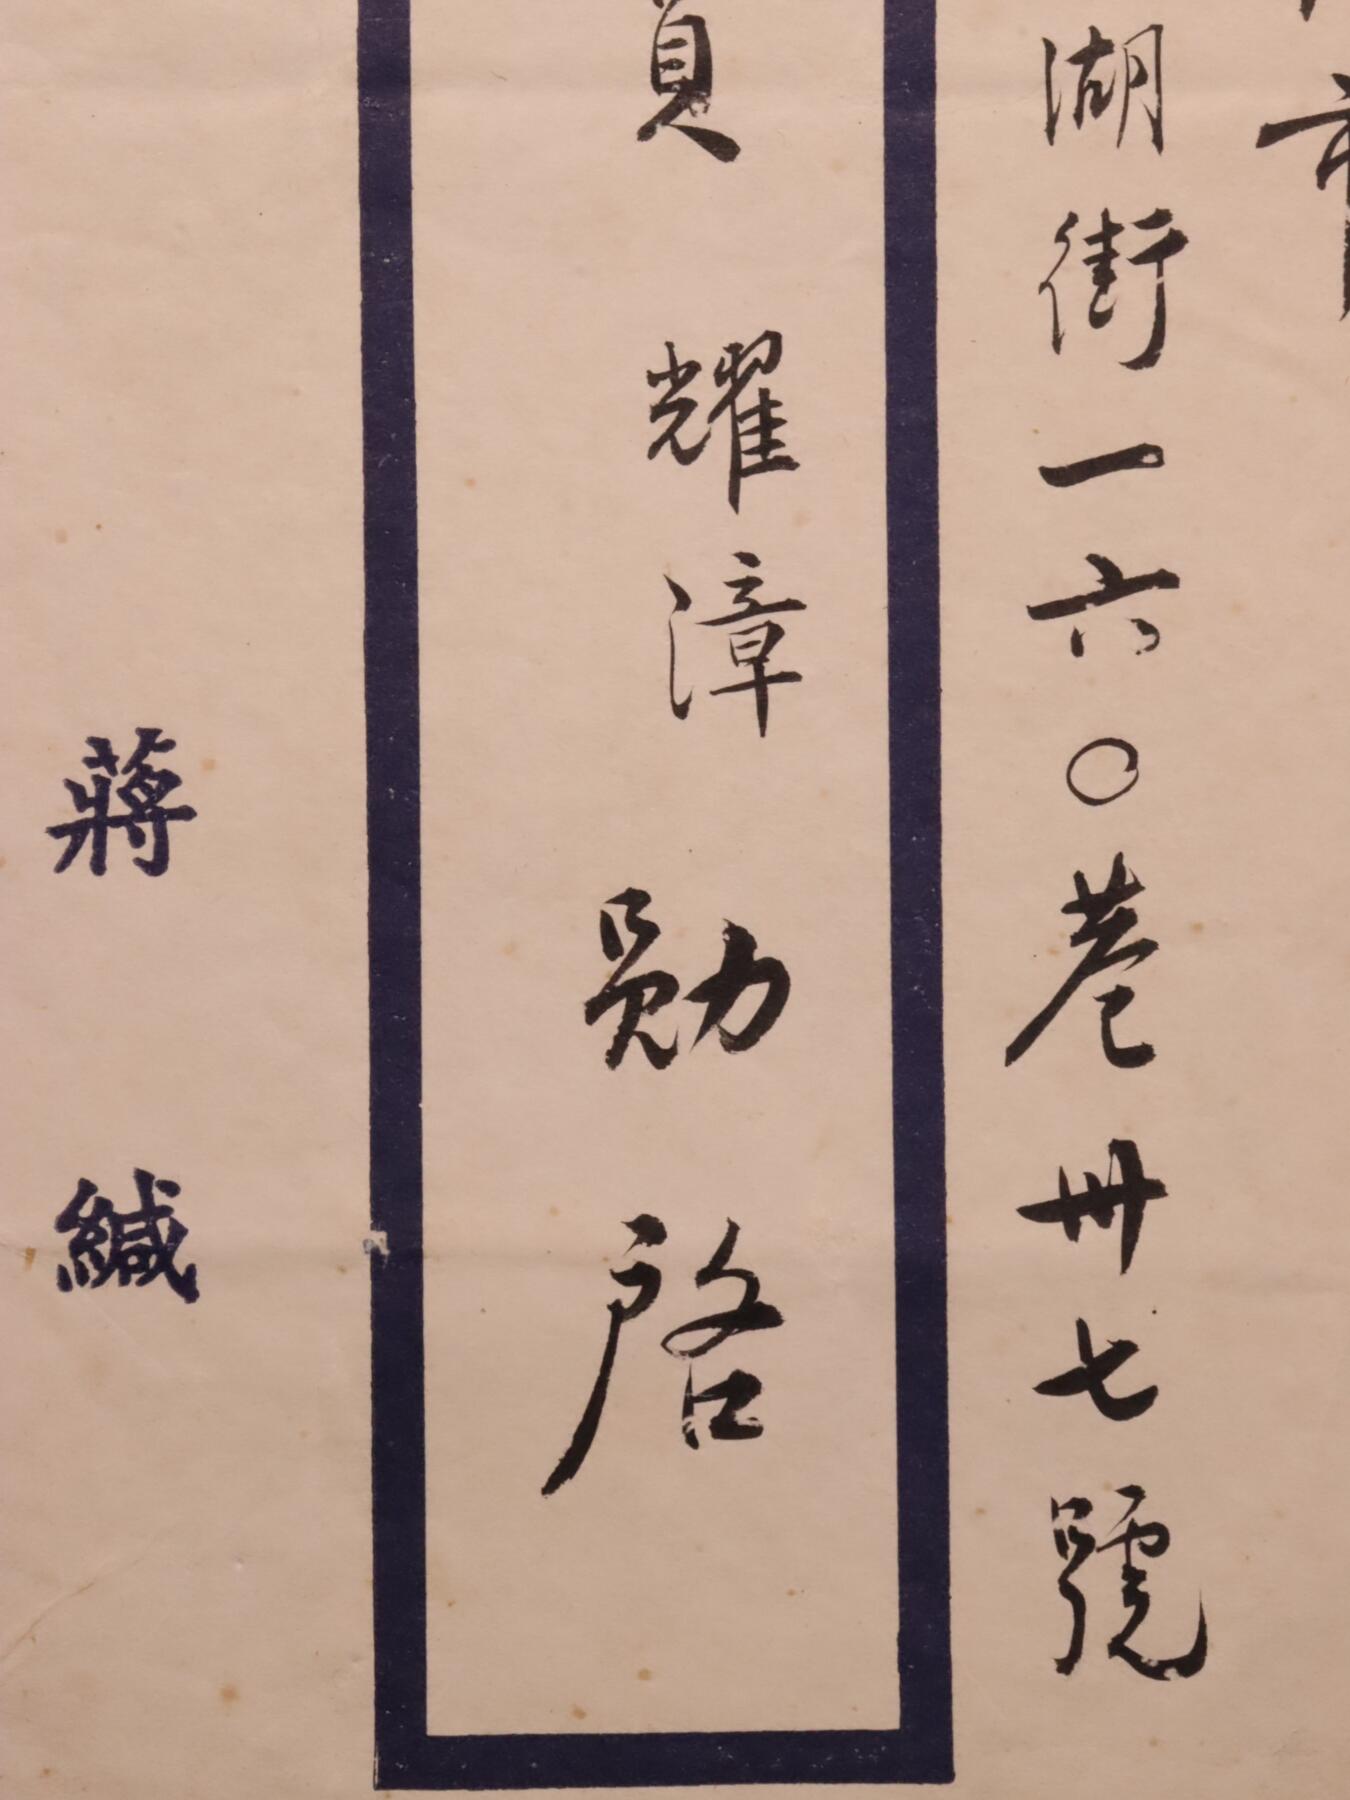 市
湖街一六〇巷卅七號
員 耀漳 勛啓
蔣緘